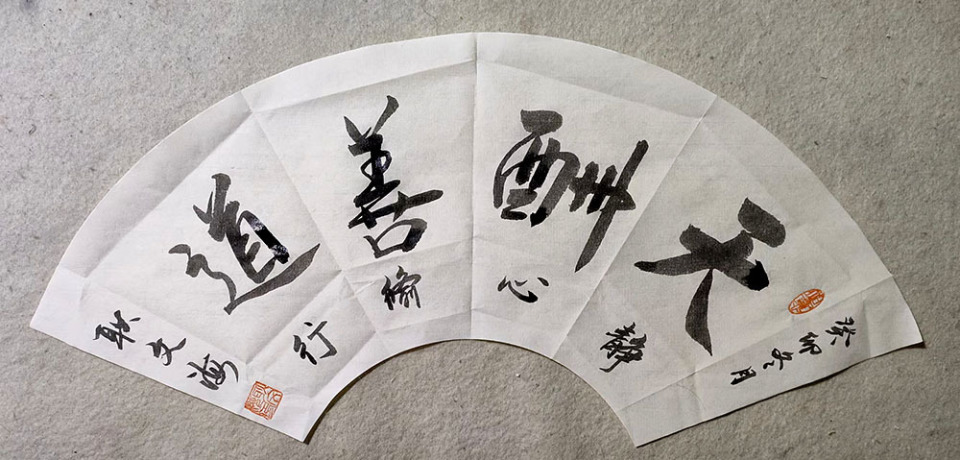 癸卯冬月
天酬善道
静心脩行
耿文海